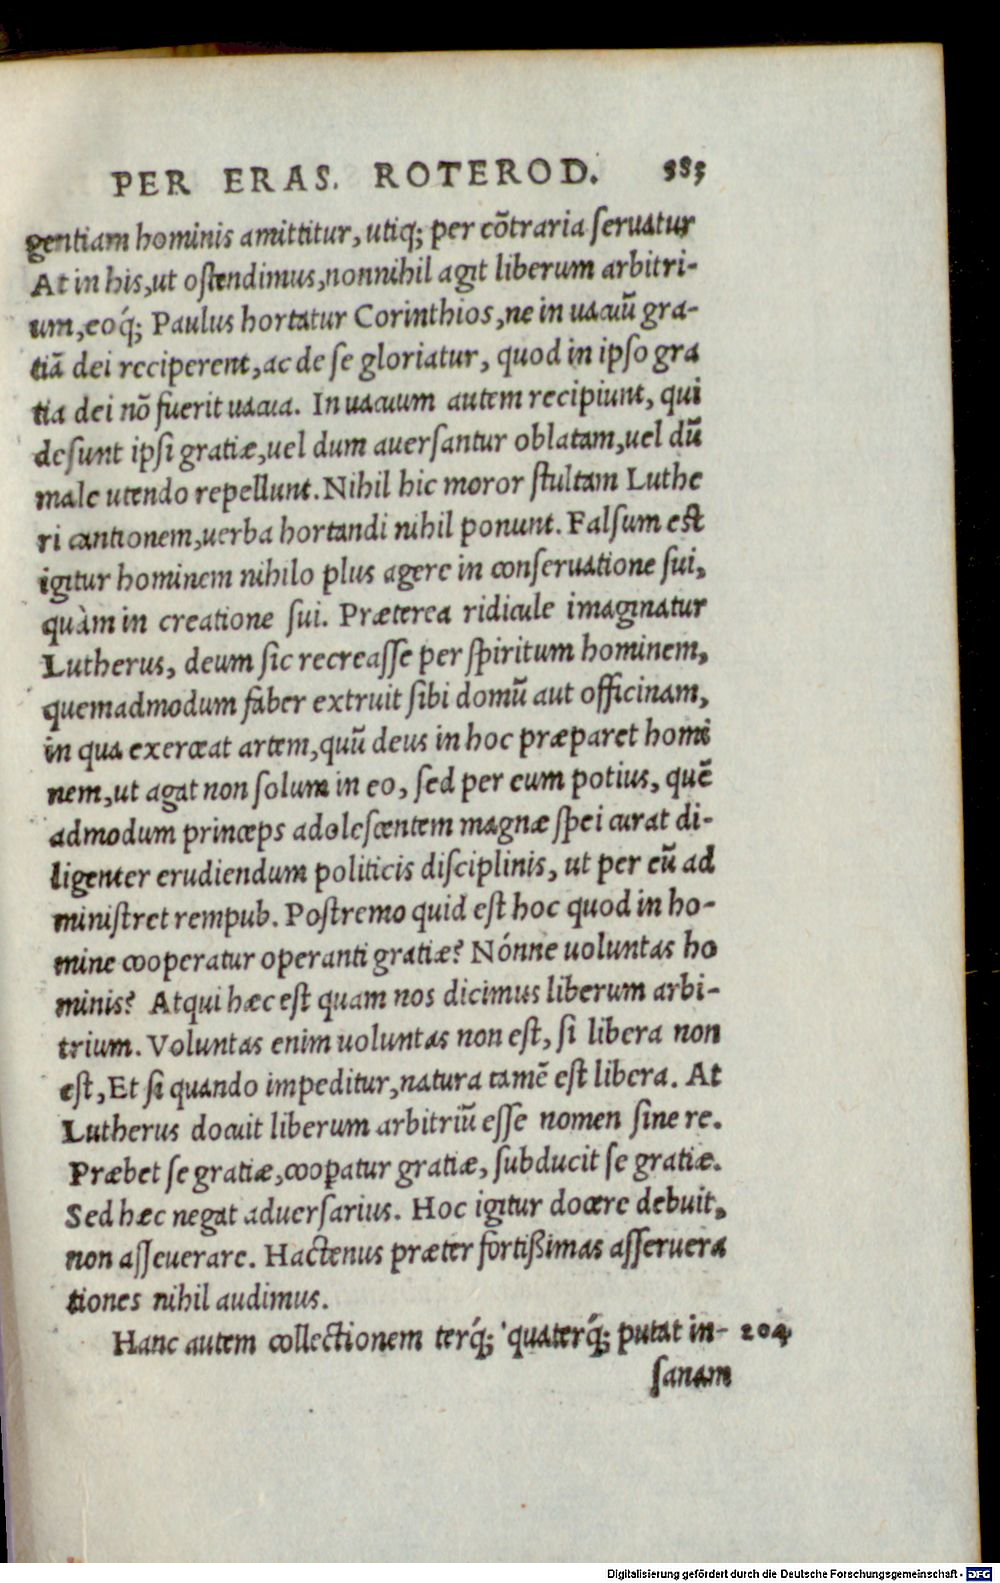 PER ERAS. ROTEROD. 585
gentiam hominis amittitur, utiq; per cõtraria ſeruatur
At in his, ut oſtendimus, nonnihil agit liberum arbitri-
um, eoq́; Paulus hortatur Corinthios, ne in uacuũ gra-
tiã dei reciperent, ac de ſe gloriatur, quod in ipſo gra
tia dei nõ fuerit uacua. In uacuum autem recipiunt, qui
deſunt ipſi gratiæ, uel dum auerſantur oblatam, uel dũ
male utendo repellunt. Nihil hic moror ſtultam Luthe
ri cantionem, uerba hortandi nihil ponunt. Falſum eſt
igitur hominem nihilo plus agere in conſeruatione ſui,
quàm in creatione ſui. Præterea ridicule imaginatur
Lutherus, deum ſic recreaſſe per ſpiritum hominem,
quemadmodum faber extruit ſibi domũ aut officinam,
in qua exerceat artem, quũ deus in hoc præparet homi
nem, ut agat non ſolum in eo, ſed per eum potius, quẽ
admodum princeps adoleſcentem magnæ ſpei curat di-
ligenter erudiendum politicis diſciplinis, ut per eũ ad
miniſtret rempub. Poſtremo quid eſt hoc quod in ho-
mine cooperatur operanti gratiæ? Nónne uoluntas ho
minis? Atqui hæc eſt quam nos dicimus liberum arbi-
trium. Voluntas enim uoluntas non eſt, ſi libera non
eſt, Et ſi quando impeditur, natura tamẽ eſt libera. At
Lutherus docuit liberum arbitriũ eſſe nomen ſine re.
Præbet ſe gratiæ, cooꝑatur gratiæ, ſubducit ſe gratiæ.
Sed hæc negat aduerſarius. Hoc igitur docere debuit,
non aſſeuerare. Hactenus præter fortißimas aſſeruera
tiones nihil audimus.
Hanc autem collectionem terq́; quaterq́; putat in- 204
ſanam
Digitalisierung gefördert durch die Deutsche Forschungsgemeinschaft - DFG